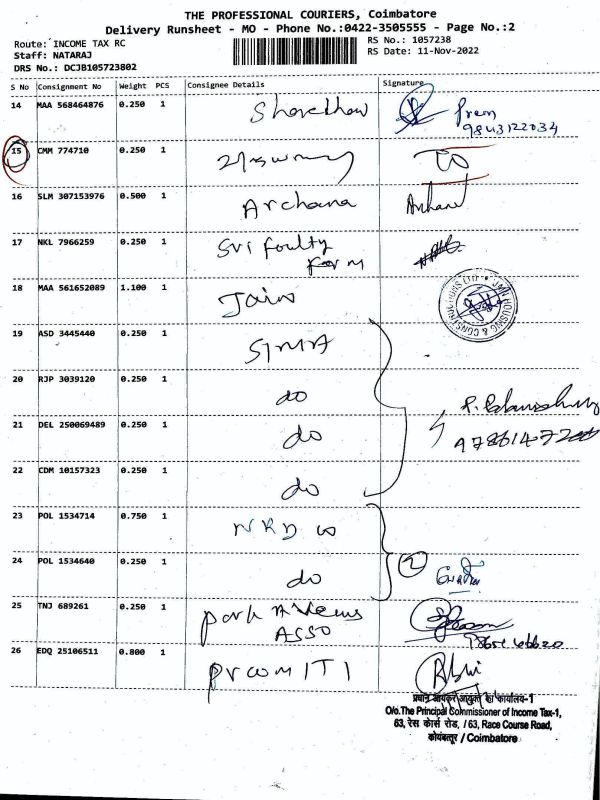 THE PROFESSIONAL COURIERS, Coimbatore
Delivery Runsheet - MO - Phone No.:0422-3505555 - Page No.:2
Route: INCOME TAX RC
RS No.: 1057238
Staff: NATARAJ
RS Date: 11-Nov-2022
DRS No.: DCJB105723802
S No Consignment No Weight PCS Consignee Details Signature
14 MAA 568464876 0.250 1
Prem
9843122034
15 CMM 774710 0.250 1
TO
16 SLM 307153976 0.500 1 Archana
17 NKL 7966259 0.250 1 Sri Foulty
Farm
18 MAA 561652089 1.100 1 Jain
JAIN HOUSING & CONSTRUCTIONS LTD
19 ASD 3445440 0.250 1 SIMA
20 RJP 3039120 0.250 1 do
21 DEL 250069489 0.250 1 do
22 CDM 10157323 0.250 1 do
23 POL 1534714 0.750 1
24 POL 1534640 0.250 1 do
2
25 TNJ 689261 0.250 1 Park
ASSO
26 EDQ 25106511 0.800 1
प्रधान आयकर आयुक्त का कार्यालय-1
O/o.The Principal Commissioner of Income Tax-1,
63, रेस कोर्स रोड, / 63, Race Course Road,
कोयंबत्तूर / Coimbatore